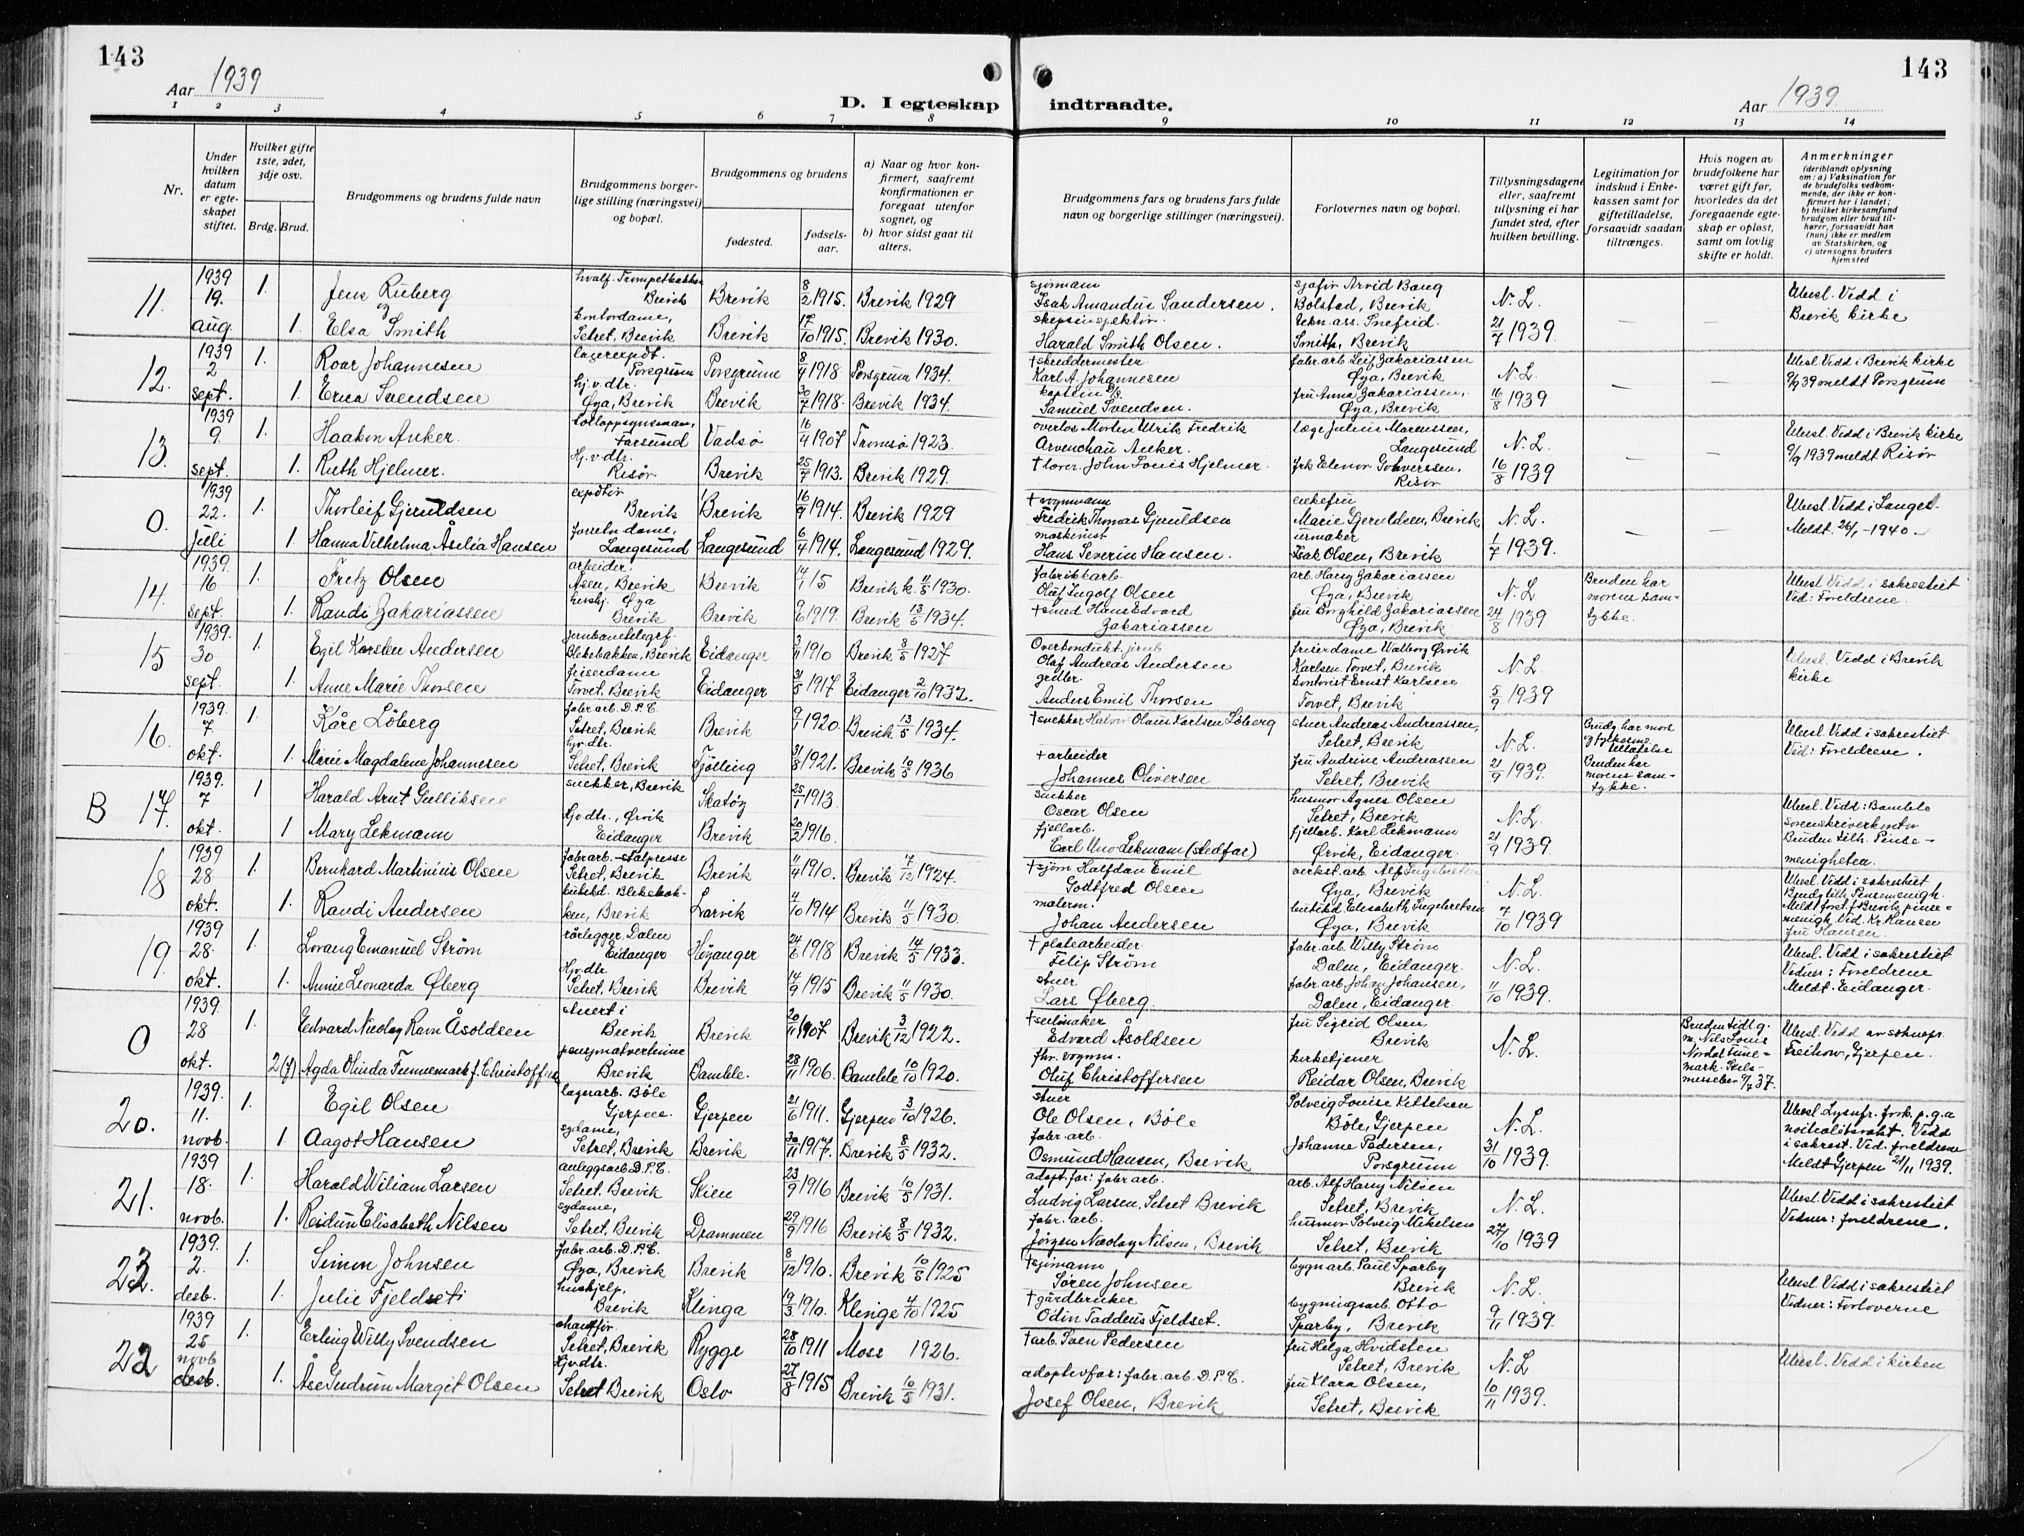 143
143
Aar 1939
Aar 1939
D. I egteskap indtraadte.
1 2 3 4 5 6 7 8 9 10 11 12 13 14
Nr.
Under hvilken datum er egteskapet stiftet.
Hvilket gifte 1ste, 2det, 3dje osv.
Brdg. Brud.
Brudgommens og brudens fulde navn
Brudgommens borgerlige stilling (næringsvei) og bopæl.
Brudgommens og brudens
fødested.
fødsels-aar.
a) Naar og hvor konfirmert, saafremt konfirmationen er foregaat utenfor sognet, og
b) hvor sidst gaat til alters.
Brudgommens fars og brudens fars fulde navn og borgerlige stillinger (næringsvei).
Forlovernes navn og bopæl.
Tillysningsdagene eller, saafremt tillysning ei har fundet sted, efter hvilken bevilling.
Legitimation for indskud i Enkekassen samt for giftetilladelse, forsaavidt saadan tiltrænges.
Hvis nogen av brudefolkene har været gift før, hvorledes da det foregaaende egteskap er opløst, samt om lovlig skifte er holdt.
Anmerkninger
(deriblandt oplysning om: a) Vaksination for de brudefolks vedkommende, der ikke er konfirmert her i landet; b) hvilket kirkesamfund brudgom eller brud tilhører, forsaavidt han (hun) ikke er medlem av Statskirken, og c) utensogns bruders hjemsted
11. 1939 19. aug. 1. Jens Ruberg hvalf. Trompetbakken Brevik Brevik 8/2 1915. Brevik 1929 sjømann Isak Amandus Sandersen. sjåfør Arvid Bang Bolstad, Brevik N.L. Utensl. Vedd i Brevik kirke
og 1. Elsa Smith kontordame, Setret, Brevik Brevik 17/10 1915. Brevik 1930. skipsinspektør. Harald Smith Olsen. tekn. ass. Snefrid Smith, Brevik 21/7 1939. — —
12. 1939 2 sept. 1. Roar Johannesen lagerexpdt. Porsgrunn Porsgrunn 8/4 1918. Porsgrunn 1934. †skreddermester Karl A. Johannesen fabr.arb. Leif Zakariassen Øya, Brevik N.L. Vedd i Brevik kirke 9/9 39 meldt Porsgrunn
1. Erna Svendsen hj.v. dtr. Øya, Brevik Brevik 20/7 1918. Brevik 1934. kaptein D/S. Samuel Svendsen. fru Anna Zakariassen, Øya, Brevik 16/8 1939 — —
13. 1939 9. sept. 1. Haakon Anker. tolloppsynsmann, Farsund Vadsø 16/4 1907 Tromsø 1923. overlos Morten Ulrik Fredrik Arvenchau Anker. læge Julius Marenssen, Langesund N.L. Vedd i Brevik kirke 9/9 1939 meldt Risør
1. Ruth Hjelmer. Hj.v dtr. Risør Brevik 25/7 1913. Brevik 1929. †lærer. John Louis Hjelmer. frk Elenor Gohverssen, Risør 16/8 1939 — —
0. 1939 22. juli 1. Thorleif Gjeruldsen expdtør Brevik Brevik 16/9 1914. Brevik 1929 †vognmann Fredrik Thomas Gjeruldsen enkefru Marie Gjeruldsen, Brevik N.L. Vedd i Langes. Meldt. 26/1-1940
1. Hanna Vilhelma Åsilia Hansen forretn. dame, Langesund Langesund 6/4 1914. Langesund 1929. maskinist Hans Severin Hansen. urmaker Isak Olsen, Brevik 1/7 1939. — —
14. 1939. 16 sept. 1. Fritz Olsen arbeider. Åsen, Brevik Brevik 14/7 15 Brevik k. 11/5 1930. fabrikkarb. Oluf Ingolf Olsen arb. Harry Zakariassen Øya, Brevik N.L. Bruden har morens samtykke. Vedd i sakrestiet Vid: Foreldrene.
1. Randi Zakariassen hushj. Øya Brevik Brevik 9/6 1919. Brevik 13/5 1934. †smed Hans Edvard Zakariassen fru Borghild Zakariassen Øya, Brevik 24/8 1939
15 1939. 30 sept. 1. Egil Karelen Andersen jernbanetelegrf. Blekebakken, Brevik Eidanger 3/11 1910 Brevik 8/5 1927 Overkondukt. jernb Olaf Andreas Andersen friserdame Walborg Ørvik Karlsen Torvet, Brevik N.L. Vedd i Brevik kirke
1. Anne Marie Thorsen friserdame Torvet, Brevik Eidanger 31/5 1917 Eidanger 2/10 1932. Anders Emil Thorsen Ernst Karlsen Torvet, Brevik 5/9 1939
16. 1939. 7 okt. 1. Kåre Löberg fabr. arb. D.P.C. Setret, Brevik Brevik 9/1 1920. Brevik 13/5 1934. †snekker Halvor Olaus Karlsen Löberg stuer Andreas Andreassen, Setret, Brevik N.L. Vedd i sakrestiet Vid: Foreldrene.
1. Marie Magdalene Johannesen hj.v dtr. Setret, Brevik Tjølling 31/8 1921. Brevik 10/5 1936 †arbeider Johannes Oliversen fru Andrine Andreassen Setret, Brevik 21/9 1939. Bruden har morens samtykke.
B 17. 1939. 7 okt. 1 Harald Arnt Gulliksen snekker, Brevik Skatøy 25/1 1913. snekker Oscar Olsen husmor Agnes Olsen Setret, Brevik N.L. Vedd: Bamble sorenskriverkontor
1 Mary Lekmann Hjv dtr., Ørvik Eidanger Brevik 20/2 1916. fjellarb. Carl Uno Lekmann (stedfar) fjellarb. Karl Lekmann Ørvik, Eidanger. 21/9 1939. Bruden tilh. Pinsemenigheten.
18 1939 28 okt. 1. Bernhard Martinius Olsen fabr arb. Setret, Brevik Brevik 11/4 1910. Brevik 7/12 1924. †sjøm Halfdan Emil Godtfred Olsen verkst. arb. Alf Ingebretsen Øya, Brevik N.L. Vedd i sakrestiet
1. Randi Andersen Blekebakken, Brevik Larvik 4/10 1914 Brevik 11/5 1930 malerm. Johan Andersen Elisabeth Ingebretsen Øya, Brevik 7/10 1939 Vid. Kr. Hansen fru Hansen
19. 1939 28. okt. 1. Lorang Emanuel Strøm rørlegger, Dalen Eidanger Høyanger 24/6 1918 Brevik 14/5 1933. †platearbeider Filip Strøm fabr. arb. Willy Strøm Dalen, Eidanger. N.L. Vedd i sakrestiet Vidner: Foreldrene Meldt. Eidanger.
1. Annie Leonarda Øberg Hjv.dtr. Setret, Brevik Brevik 14/9 1915 Brevik 11/5 1930. stuer Lars Øberg. fabr. arb Johan Johansen, Dalen, Eidanger 11/10 1939.
0 1939. 28 okt. 1. Edvard Nicolay Ravn Åsoldsen stuert i Brevik Brevik 20/11 1907 Brevik 3/12 1922. †seilmaker Edvard Åsoldsen fru Sigrid Olsen Brevik N.L. Bruden tidl g. m. Nils Louis Nordal Funnemark. Vedd av soknepr. Freihow, Gjerpen.
2(f) Agda Olinda Funnemark f. Christoffersen Brevik Bamble. 28/11 1906. Bamble 10/10 1920. fhv. vognm. Oluf Christoffersen kirketjener Reidar Olsen, Brevik
20. 1939. 11. novb. 1. Egil Olsen lagerarb. Böle Gjerpen. Gjerpen 21/6 1911. Gjerpen 3/10 1926. stuer Ole Olsen, Böle Solveig Louise Kittelsen Böle, Gjerpen N.L. Vedd i sakrest. Vid. foreldrene Meldt Gjerpen 21/11 1939.
1. Aagot Hansen sydame, Setret, Brevik Brevik 30/11 1917. Brevik 8/5 1932. fabr. arb. Osmund Hansen, Brevik Johanne Pedersen, Porsgrunn 31/10 1939.
21. 1939 18. novb. 1. Harald Wiliam Larsen anleggsarb D.P.C. Setret, Brevik Skien 23/9 1916 Brevik 10/5 1931. adopt. far: fabr arb. Ludvig Larsen, Setret Brevik arb. Alf Harry Nilsen Setret, Brevik N.L. Vedd i sakrestiet Vidner: foreldrene.
1. Reidun Elisabeth Nilsen sydame, Setret, Brevik Drammen 29/9 1916 Brevik 8/5 1932. fabr. arb. Jörgen Nicolay Nilsen, Brevik husmor Solveig Mikelsen Setret, Brevik 27/10 1939
23. 1939. 2. desb. 1. Simon Johnsen fabr. arb. D.P.C. Øya, Brevik Brevik 8/12 1910. Brevik 10/8 1925 †sjömann Søren Johnsen bygn arb. Paul Sparby Brevik N.L. Vedd i sakrestiet Vidner: Forloverne
1. Julie Fjeldseti hushjelp, Brevik Klinga 19/3 1910. Klinga 4/10 1925 †gårdbruker Odin Taddeus Fjeldset. bygningsarb. Otto Sparby, Brevik 9/11 1939.
22 1939 25 novb desb. 1. Erling Willy Svendsen chauffør Setret, Brevik Rygge 28/10 1911 Moss 1926. †arb. Sven Pedersen fru Helga Hvidsten Setret, Brevik N.L Vedd i kirken
1. Åse Gudrun Margit Olsen Hjv.dtr. Setret Brevik Oslo 27/8 1915 Brevik 10/5 1931. adoptivfar: fabr. arb. D.P.C. Josef Olsen, Brevik fru Klara Olsen, Setret, Brevik 10/11 1939.